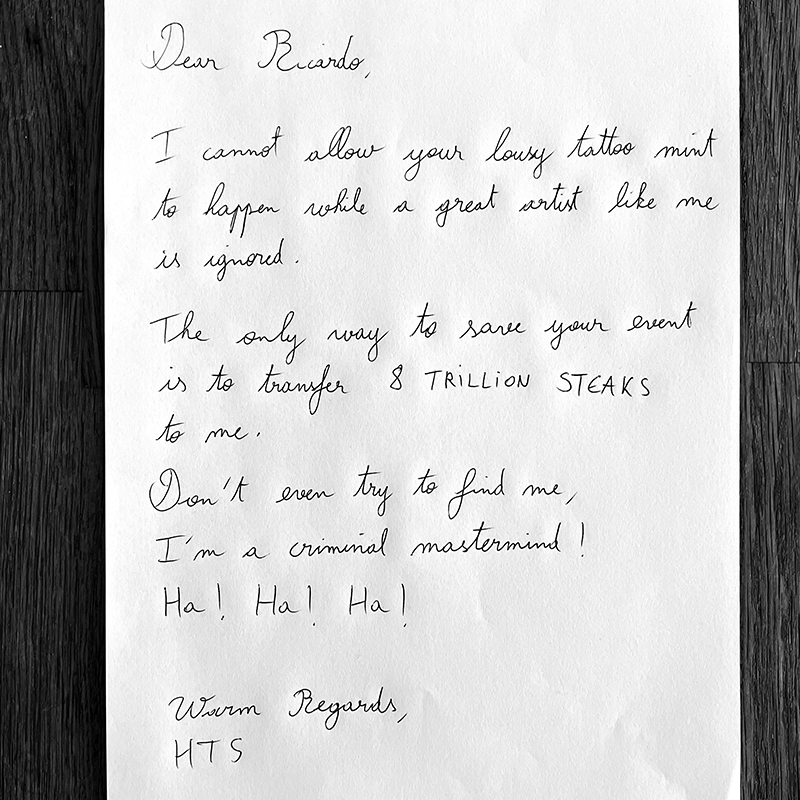 Dear Ricardo,
I cannot allow your lousy tattoo mint
to happen while a great artist like me
is ignored.
The only way to save your event
is to transfer 8 TRILLION STEAKS
to me.
Don't even try to find me,
I'm a criminal mastermind!
Ha! Ha! Ha!
Warm Regards,
HTS